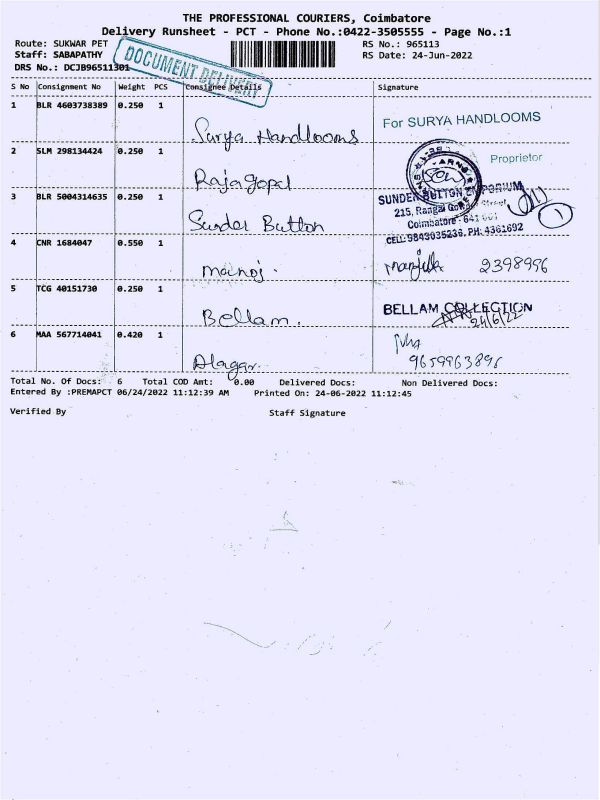 THE PROFESSIONAL COURIERS, Coimbatore
Delivery Runsheet - PCT - Phone No.:0422-3505555 - Page No.:1
Route: SUKWAR PET
RS No.: 965113
Staff: SABAPATHY
RS Date: 24-Jun-2022
DRS No.: DCJB96511301
DOCUMENT DELIVERY
S No Consignment No Weight PCS Consignee Details Signature
1 BLR 4603738389 0.250 1
Surya Handlooms
For SURYA HANDLOOMS
Proprietor
2 SLM 298134424 0.250 1
Rajagopal
3 BLR 5004314635 0.250 1
Sunder Button
SUNDER BUTTON EMPORIUM
215, Rangai Street,
Coimbatore - 641 001
CELL: 9843035236, PH: 4361692
1
4 CNR 1684047 0.550 1
manoj.
2398996
5 TCG 40151730 0.250 1
Bellam.
BELLAM COLLECTION
24/6/22
6 MAA 567714041 0.420 1
Alagar.
9659963896
Total No. Of Docs: 6 Total COD Amt: 0.00 Delivered Docs: Non Delivered Docs:
Entered By :PREMAPCT 06/24/2022 11:12:39 AM Printed On: 24-06-2022 11:12:45
Verified By Staff Signature